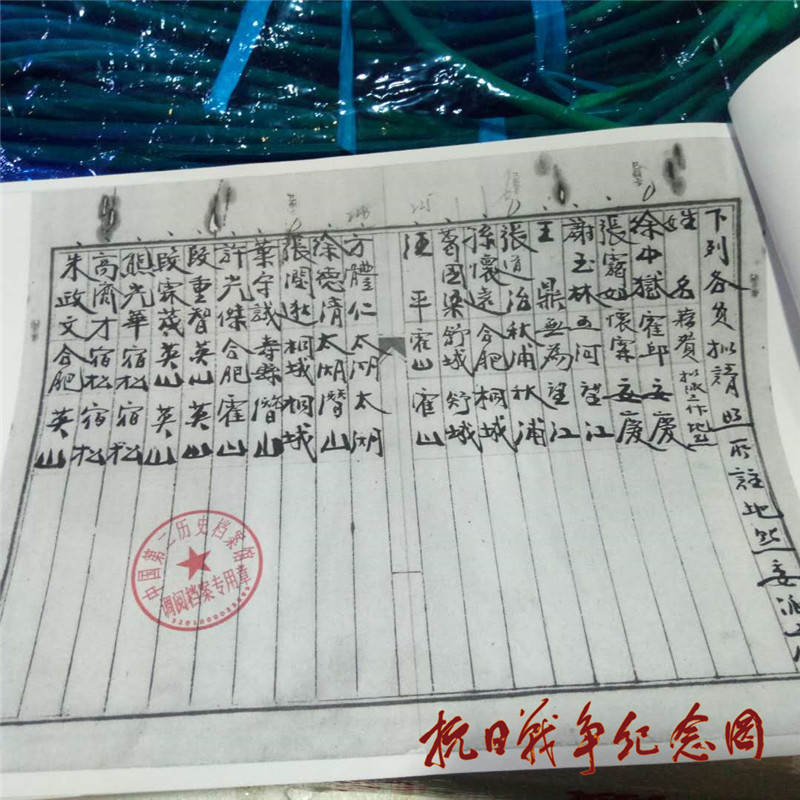 下列各員拟請照所註地点委派工
姓名 籍貫 拟派工作地點
徐中嶽 霍邱 安慶
張 懷寧 安慶
謝玉林 五河 望江
王鼎 無為 望江
張道治 秋浦 秋浦
孫懷遠 合肥 桐城
葛國梁 舒城 舒城
汪平 霍山 霍山
方體仁 太湖 太湖
徐德清 太湖 潛山
張闓遜 桐城 桐城
葉守誠 壽縣 潛山
許光傑 合肥 霍山
段重智 英山 英山
段霖茂 英山 英山
熊光華 宿松 宿松
高濟才 宿松 宿松
朱政文 合肥 英山
225
中国第二历史档案馆
调阅档案专用章
抗日戰争纪念网